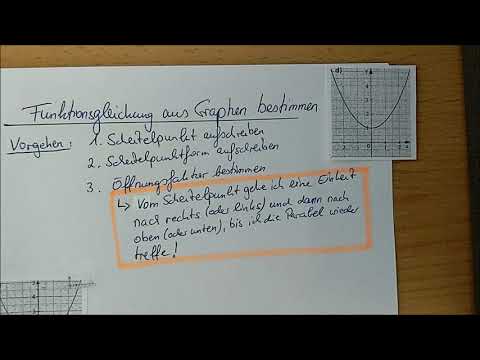 Funktionsgleichung aus Graphen bestimmen
Vorgehen: 1. Scheitelpunkt aufschreiben
2. Scheitelpunktform aufschreiben
3. Öffnungsfaktor bestimmen
↳ Vom Scheitelpunkt gehe ich eine Einheit
nach rechts (oder links) und dann nach
oben (oder unten), bis ich die Parabel wieder
treffe!
d)